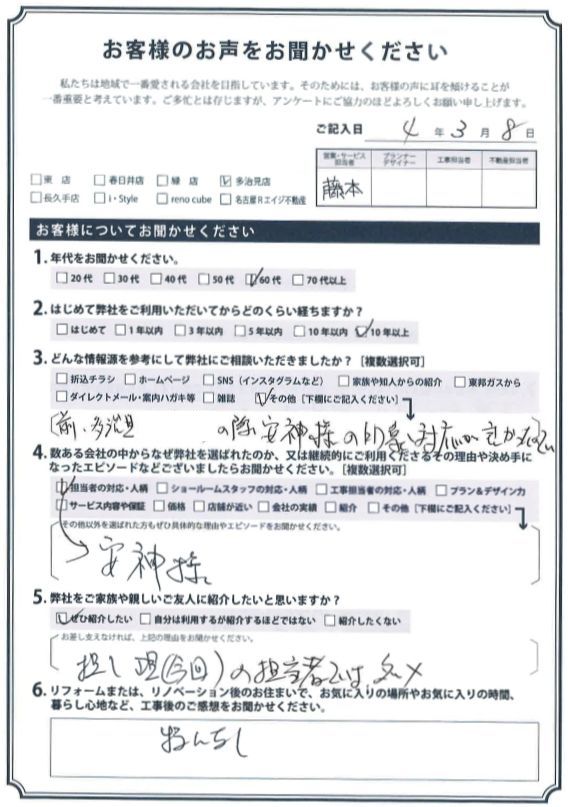 お客様のお声をお聞かせください
私たちは地域で一番愛される会社を目指しています。そのためには、お客様の声に耳を傾けることが
一番重要と考えています。ご多忙とは存じますが、アンケートにご協力のほどよろしくお願い申し上げます。
ご記入日 4年3月8日
営業・サービス担当者 プランナーデザイナー 工事担当者 不動産担当者
藤本
□東 店 □春日井店 □緑 店 ☑多治見店
□長久手店 □i・Style □reno cube □名古屋Rエイジ不動産
お客様についてお聞かせください
1. 年代をお聞かせください。
□20代 □30代 □40代 □50代 ☑60代 □70代以上
2. はじめて弊社をご利用いただいてからどのくらい経ちますか？
□はじめて □1年以内 □3年以内 □5年以内 □10年以内 ☑10年以上
3. どんな情報源を参考にして弊社にご相談いただきましたか？［複数選択可］
□折込チラシ □ホームページ □SNS（インスタグラムなど） □家族や知人からの紹介 □東邦ガスから
□ダイレクトメール・案内ハガキ等 □雑誌 ☑その他［下欄にご記入ください］
前、多治見 の際、安神様の印象、対応が
4. 数ある会社の中からなぜ弊社を選ばれたのか、又は継続的にご利用くださるその理由や決め手に
なったエピソードなどございましたらお聞かせください。［複数選択可］
☑担当者の対応・人柄 □ショールームスタッフの対応・人柄 □工事担当者の対応・人柄 □プラン＆デザイン力
□サービス内容や保証 □価格 □店舗が近い □会社の実績 □紹介 □その他［下欄にご記入ください］
その他以外を選ばれた方もぜひ具体的な理由やエピソードをお聞かせください。
安神様。
5. 弊社をご家族や親しいご友人に紹介したいと思いますか？
☑ぜひ紹介したい □自分は利用するが紹介するほどではない □紹介したくない
お差し支えなければ、上記の理由をお聞かせください。
担し 現(今回)の担当者では ダメ
6. リフォームまたは、リノベーション後のお住まいで、お気に入りの場所やお気に入りの時間、
暮らし心地など、工事後のご感想をお聞かせください。